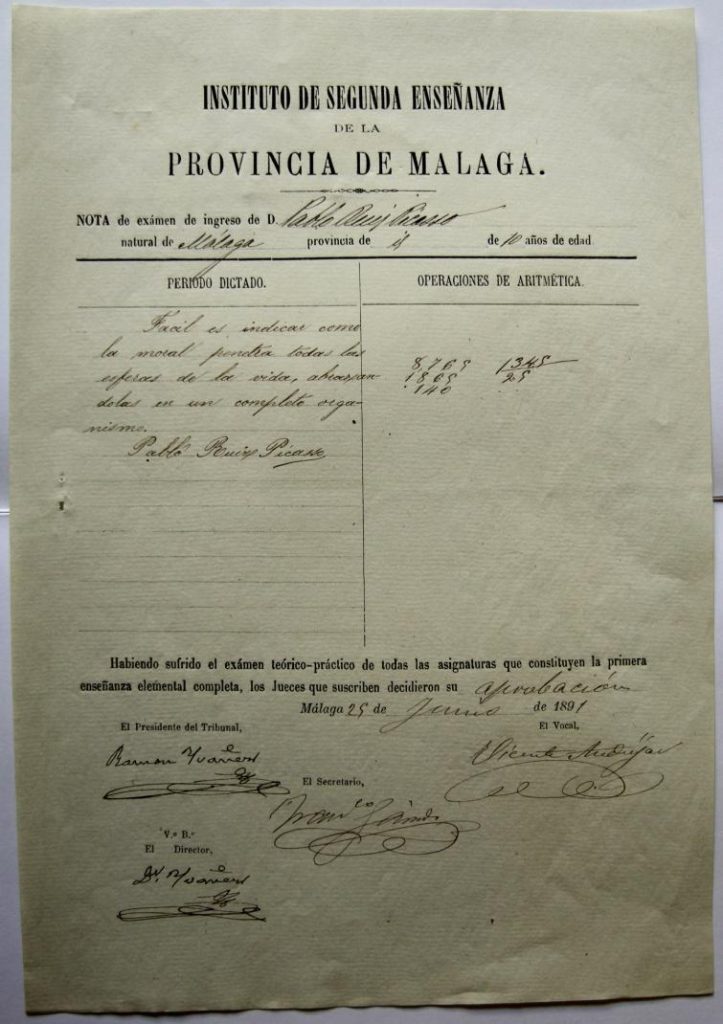 INSTITUTO DE SEGUNDA ENSEÑANZA
DE LA
PROVINCIA DE MALAGA.
NOTA de exámen de ingreso de D. Pablo Ruiz Picasso
natural de Málaga provincia de id de 10 años de edad
PERIODO DICTADO.
Facil es indicar como
la moral penetra todas las
esferas de la vida, abrazan
dolas en un completo orga-
nismo.
Pablo Ruiz Picasso
OPERACIONES DE ARITMÉTICA.
8765 1345
1865 25
140
Habiendo sufrido el exámen teórico-práctico de todas las asignaturas que constituyen la primera
enseñanza elemental completa, los Jueces que suscriben decidieron su aprobación
Málaga 25 de Junio de 1891
El Presidente del Tribunal,
El Vocal,
Ramon
Vicente Andújar
El Secretario,
V.º B.º
El Director,